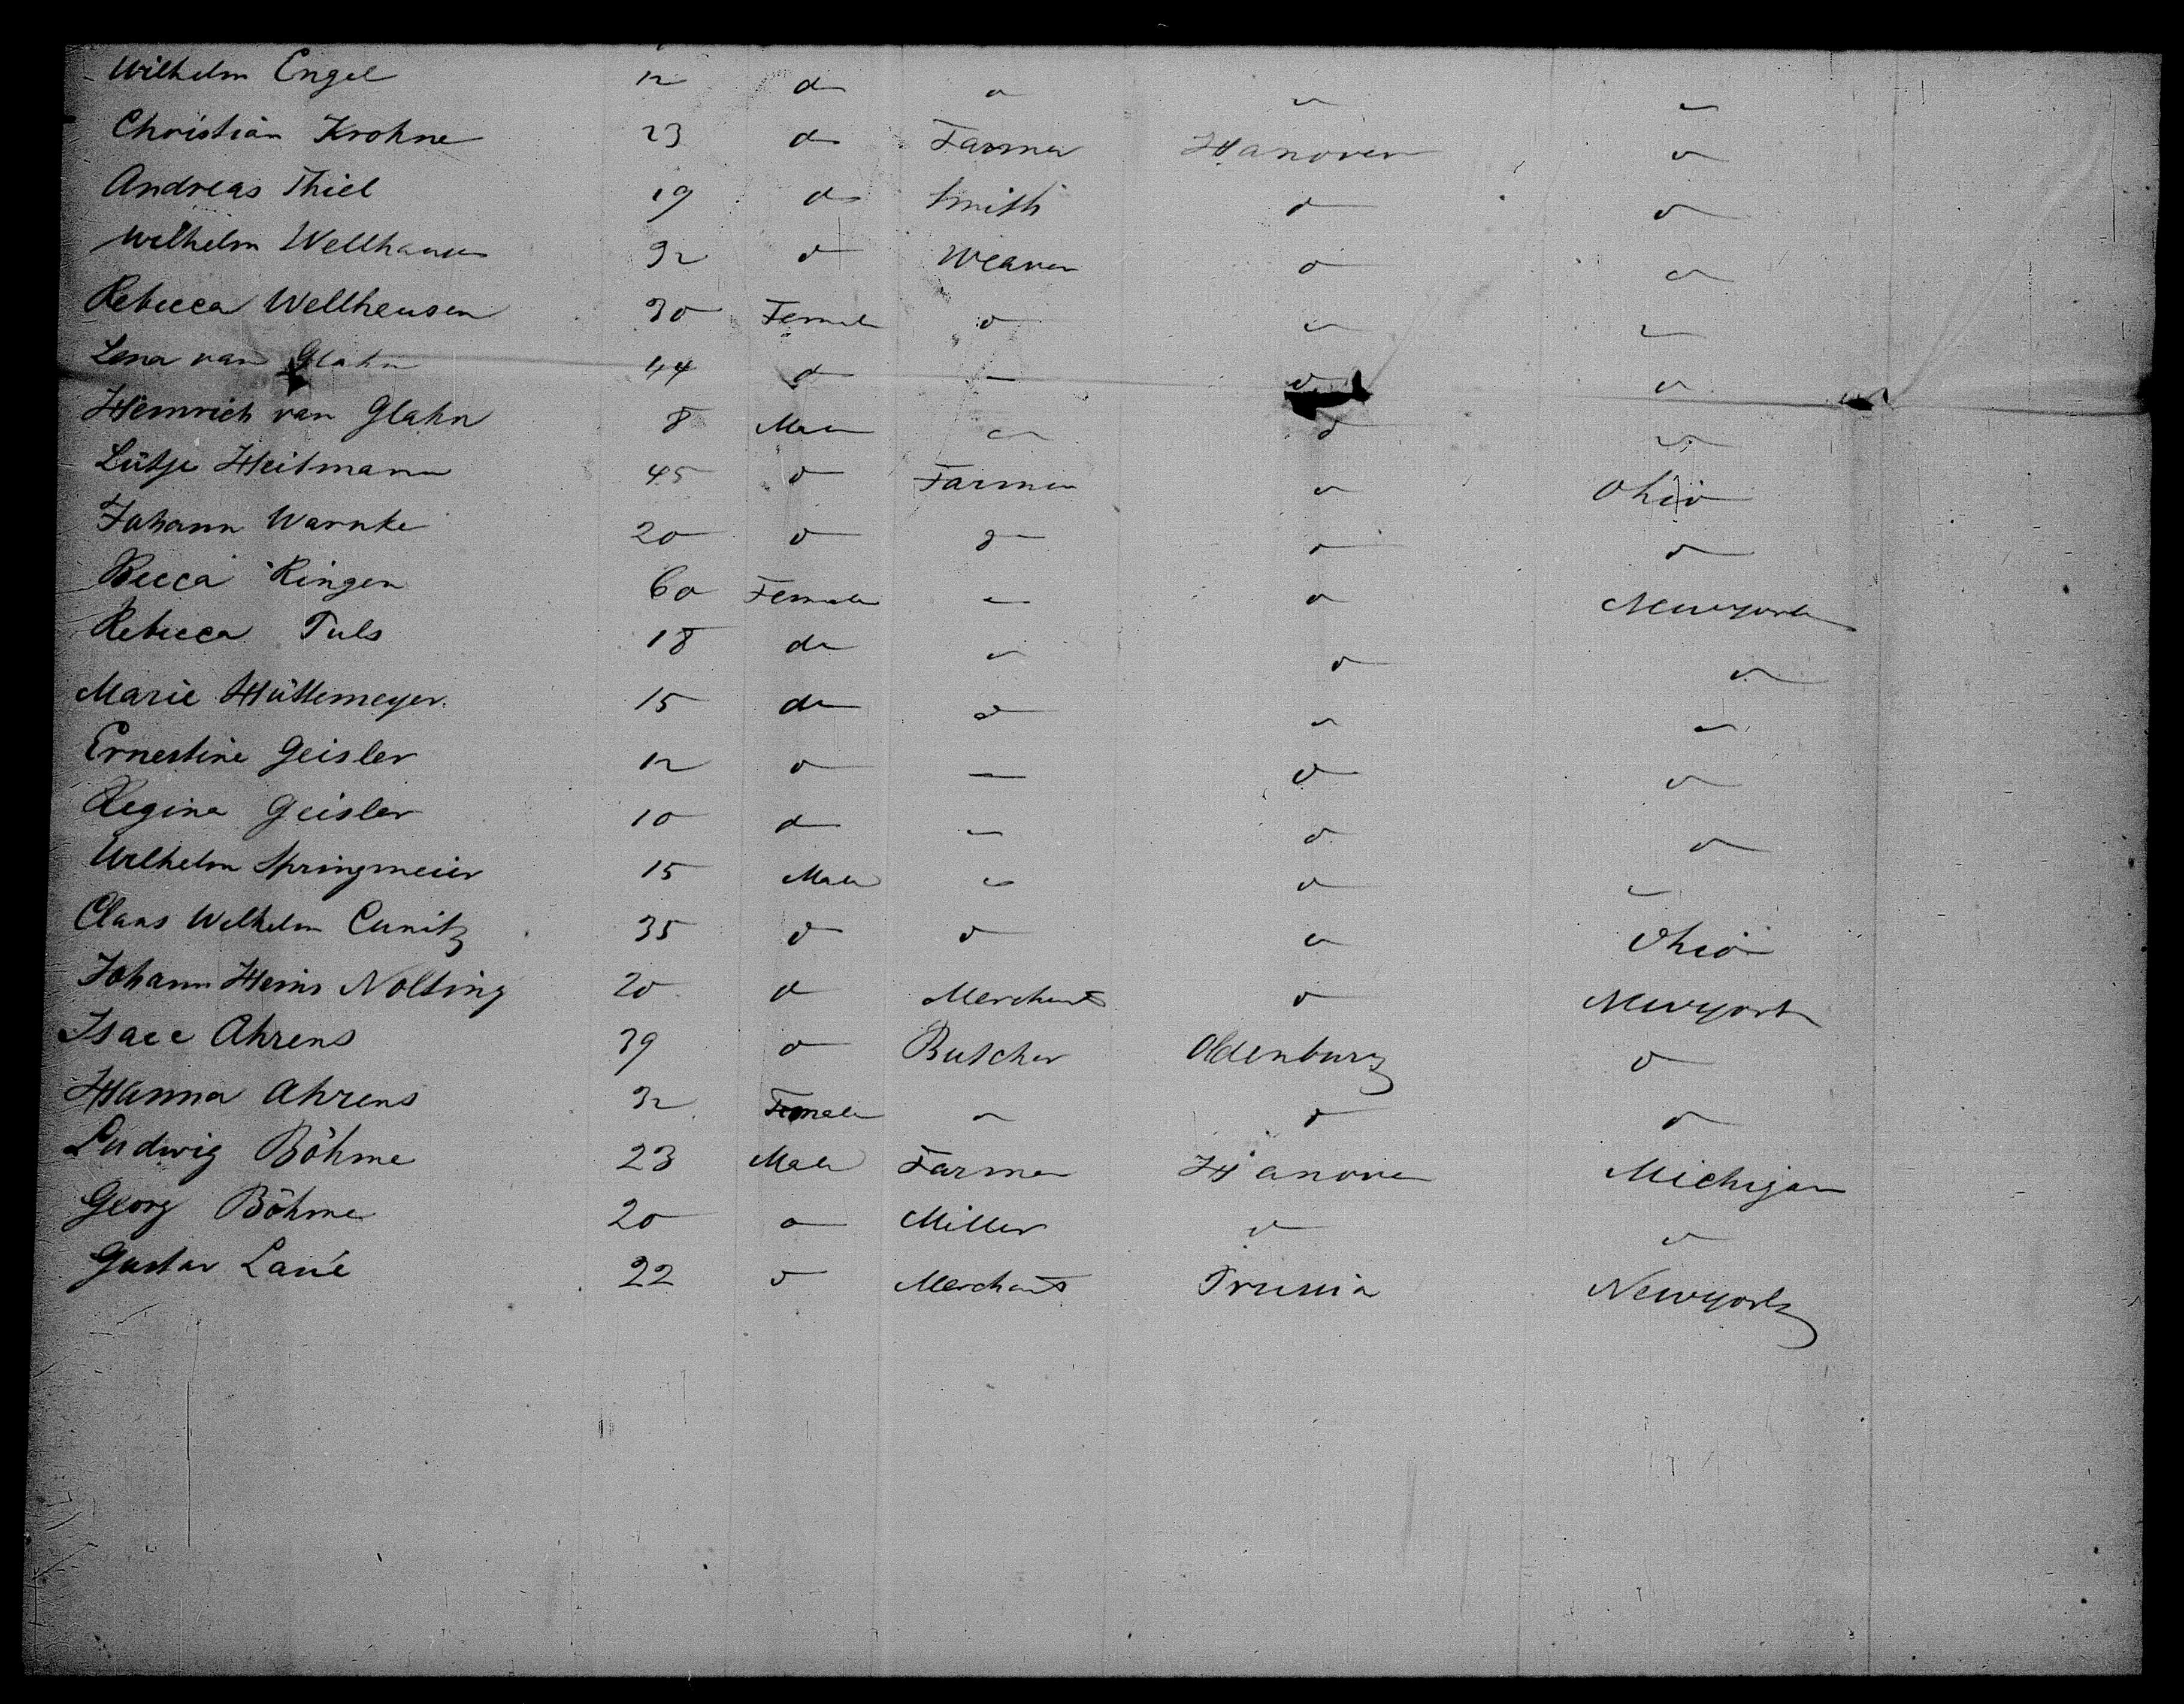 Wilhelm Engel 12 do do do do
Christian Krohne 23 do Farmer Hanover do
Andreas Thiel 19 do Smith do do
Wilhelm Wellhausen 32 do Weaver do do
Rebecca Wellheusen 30 Female do do do
Lena van Glahn 44 do — do do
Heinrich van Glahn 8 Male do do do
Lütje Heitmann 45 do Farmer do Ohio
Johann Warnke 20 do do do do
Becca Ringen 60 Female — do Newyork
Rebecca Tuls 18 do do do do
Marie Hüttemeyer. 15 do do do do
Ernestine Geisler 12 do — do do
Regina Geisler 10 do — do do
Wilhelm Springmeier 15 Male do do do
Claus Wilhelm Cunitz 35 do do do Ohio
Johann Heinr Nolting 20 do Merchant do Newyork
Isaac Ahrens 39 do Butcher Oldenburg do
Hanna Ahrens 32 Female do do do
Ludwig Böhme 23 Male Farmer Hanover Michigan
Georg Böhme 20 do Miller do do
Gustav 22 do Merchant Prussia Newyork